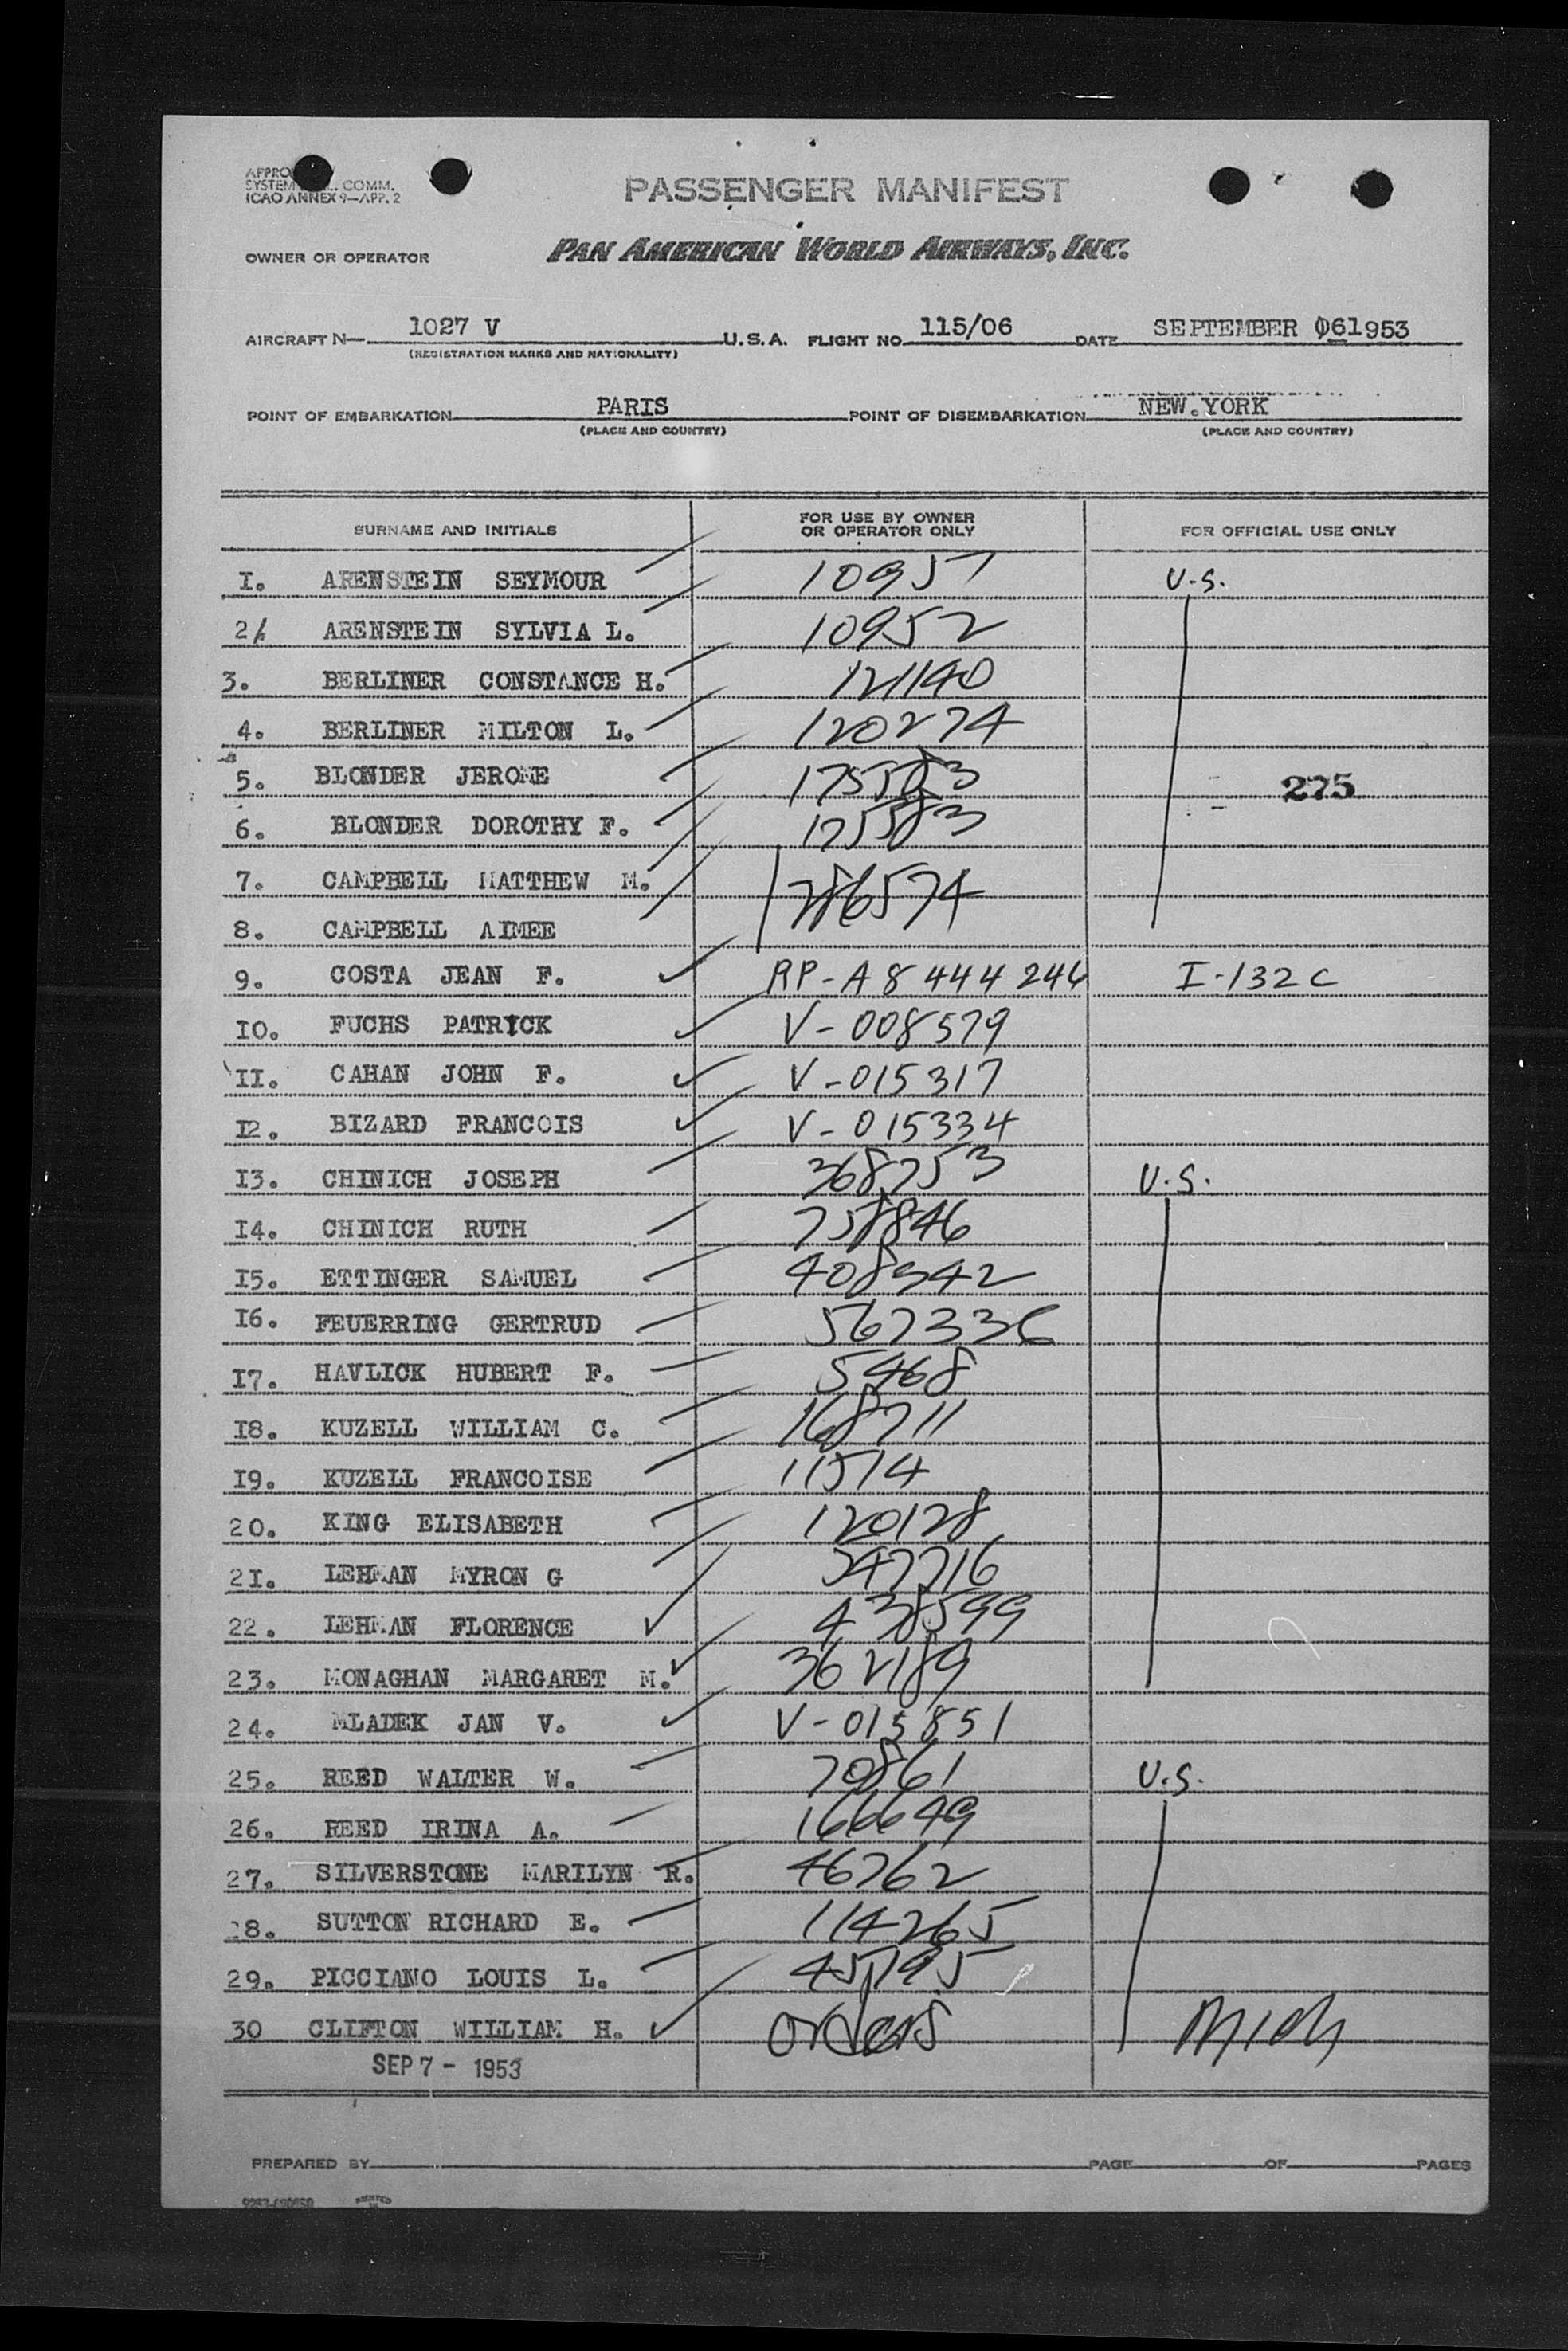 PASSENGER MANIFEST
SYSTEM COMM.
ICAO ANNEX 9—APP. 2
OWNER OR OPERATOR PAN AMERICAN WORLD AIRWAYS, INC.
AIRCRAFT N— 1027 V U.S.A. FLIGHT NO. 115/06 DATE SEPTEMBER 061953
(REGISTRATION MARKS AND NATIONALITY)
POINT OF EMBARKATION PARIS POINT OF DISEMBARKATION NEW.YORK
(PLACE AND COUNTRY) (PLACE AND COUNTRY)
SURNAME AND INITIALS FOR USE BY OWNER OR OPERATOR ONLY FOR OFFICIAL USE ONLY
I. ARENSTEIN SEYMOUR 10951 U.S.
2. ARENSTEIN SYLVIA L. 10952
3. BERLINER CONSTANCE H. 121140
4. BERLINER MILTON L. 120274
5. BLONDER JEROME 175503 275
6. BLONDER DOROTHY F. 175583
7. CAMPBELL MATTHEW M. 286574
8. CAMPBELL AIMEE
9. COSTA JEAN F. RP-A8 444 246 I-132C
IO. FUCHS PATRICK V-008579
II. CAHAN JOHN F. V-015317
I2. BIZARD FRANCOIS V-015334
I3. CHINICH JOSEPH 368753 U.S.
I4. CHINICH RUTH 758846
I5. ETTINGER SAMUEL 408542
I6. FEUERRING GERTRUD 567336
I7. HAVLICK HUBERT F. 5468
I8. KUZELL WILLIAM C. 168711
I9. KUZELL FRANCOISE 11514
20. KING ELISABETH 120128
2I. LEHMAN MYRON G 347716
22. LEHMAN FLORENCE 438599
23. MONAGHAN MARGARET M. 362189
24. MLADEK JAN V. V-015851
25. REED WALTER W. 70861 U.S.
26. REED IRINA A. 166649
27. SILVERSTONE MARILYN R. 46762
28. SUTTON RICHARD E. 114265
29. PICCIANO LOUIS L. 45795
30 CLIFTON WILLIAM H. orders
SEP 7 - 1953
PREPARED BY PAGE OF PAGES